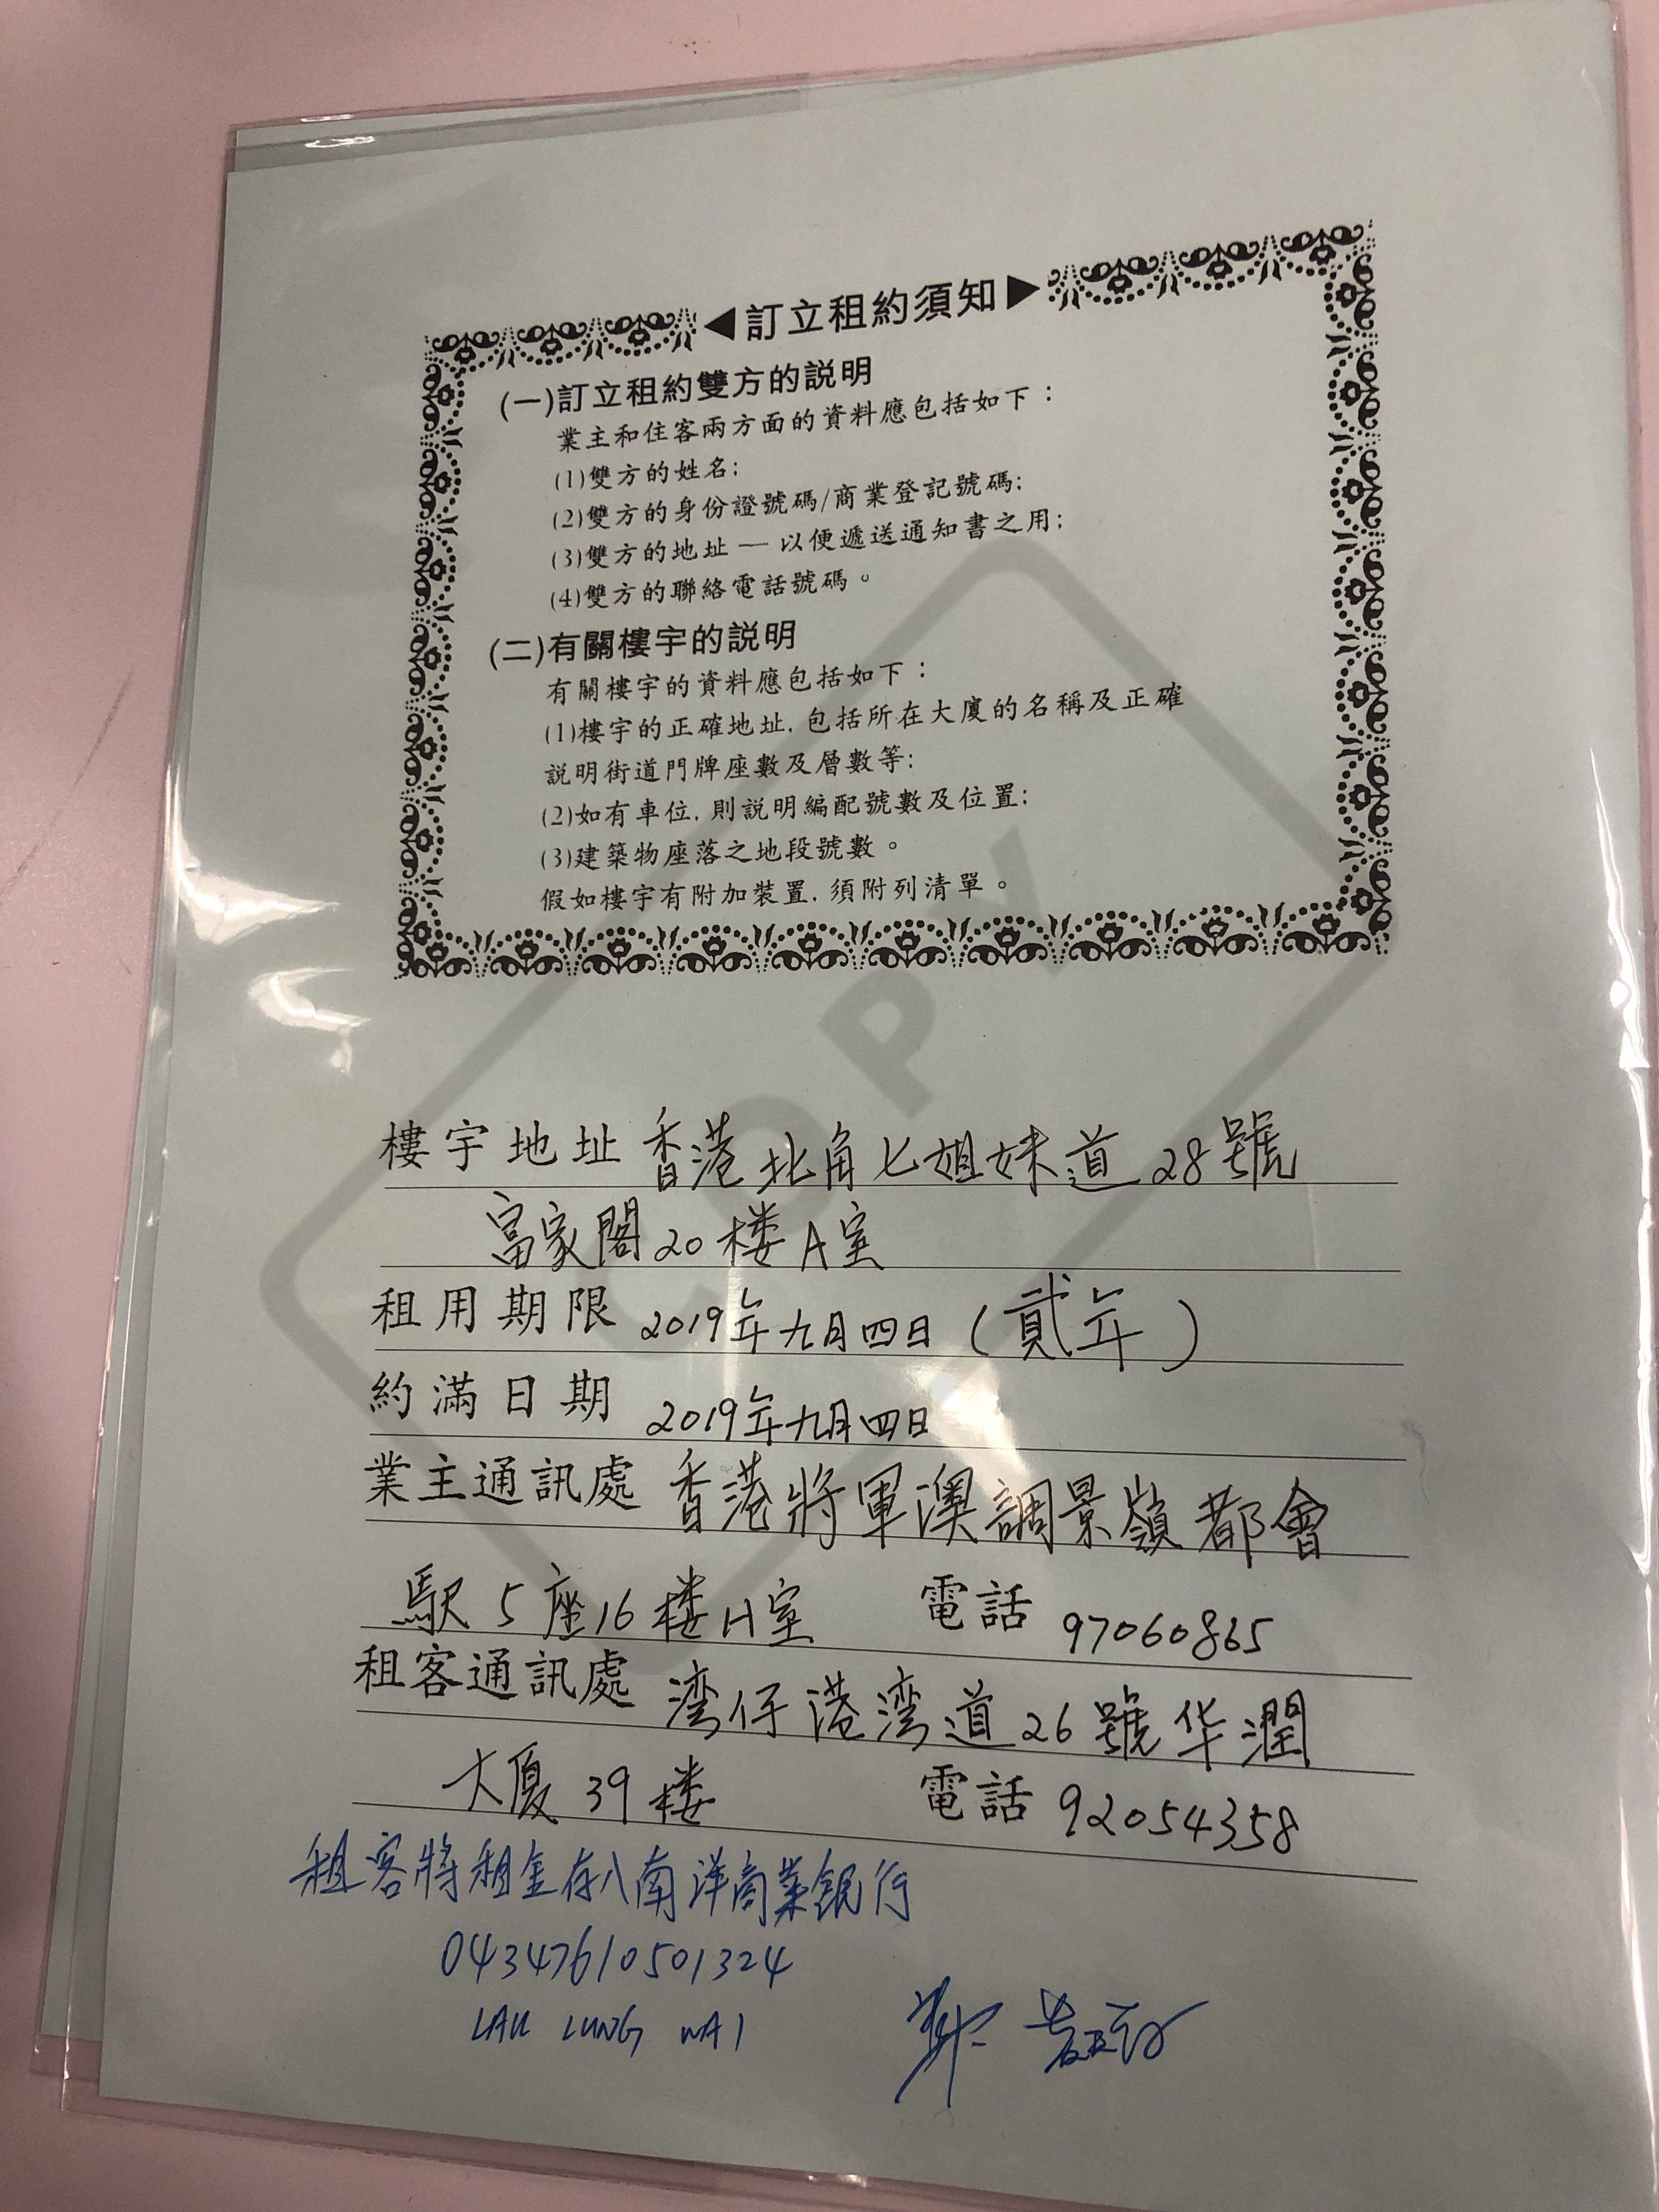 ◀訂立租約須知▶
(一)訂立租約雙方的説明
業主和住客兩方面的資料應包括如下：
(1)雙方的姓名;
(2)雙方的身份證號碼/商業登記號碼;
(3)雙方的地址 — 以便遞送通知書之用;
(4)雙方的聯絡電話號碼。
(二)有關樓宇的説明
有關樓宇的資料應包括如下：
(1)樓宇的正確地址,包括所在大廈的名稱及正確
説明街道門牌座數及層數等;
(2)如有車位,則説明編配號數及位置;
(3)建築物座落之地段號數。
假如樓宇有附加裝置,須附列清單。
COPY
樓宇地址 香港北角七姐妹道28號
富家閣20楼A室
租用期限 2019年九月四日(貳年)
約滿日期 2019年九月四日
業主通訊處 香港將軍澳調景嶺都會
駅5座16楼H室 電話 97060865
租客通訊處 湾仔港湾道26號华潤
大廈39楼 電話 92054358
租客將租金存入南洋商業銀行
04347610501324
LAU LUNG WAI